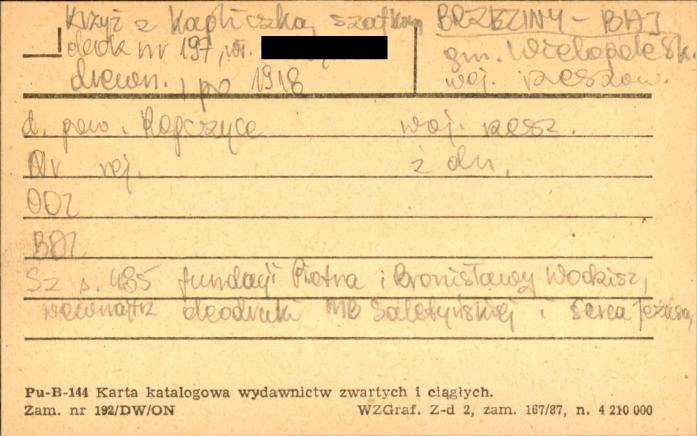 Krzyż z kapliczką szafkową BRZEZINY - BAJ
obok nr 197, wł. gm. Wielopole Sk.
drewn., po 1918 woj. rzeszow.
d. pow. Ropczyce woj. rzesz.
Nr rej. z dn.
ODZ
BDZ
Sz s. 485 fundacji Piotra i Bronisławy Wodzisz,
wewnątrz oleodruki MB Saletyńskiej i Serca Jezusa,
Pu-B-144 Karta katalogowa wydawnictw zwartych i ciągłych.
Zam. nr 192/DW/ON WZGraf. Z-d 2, zam. 167/87, n. 4 210 000